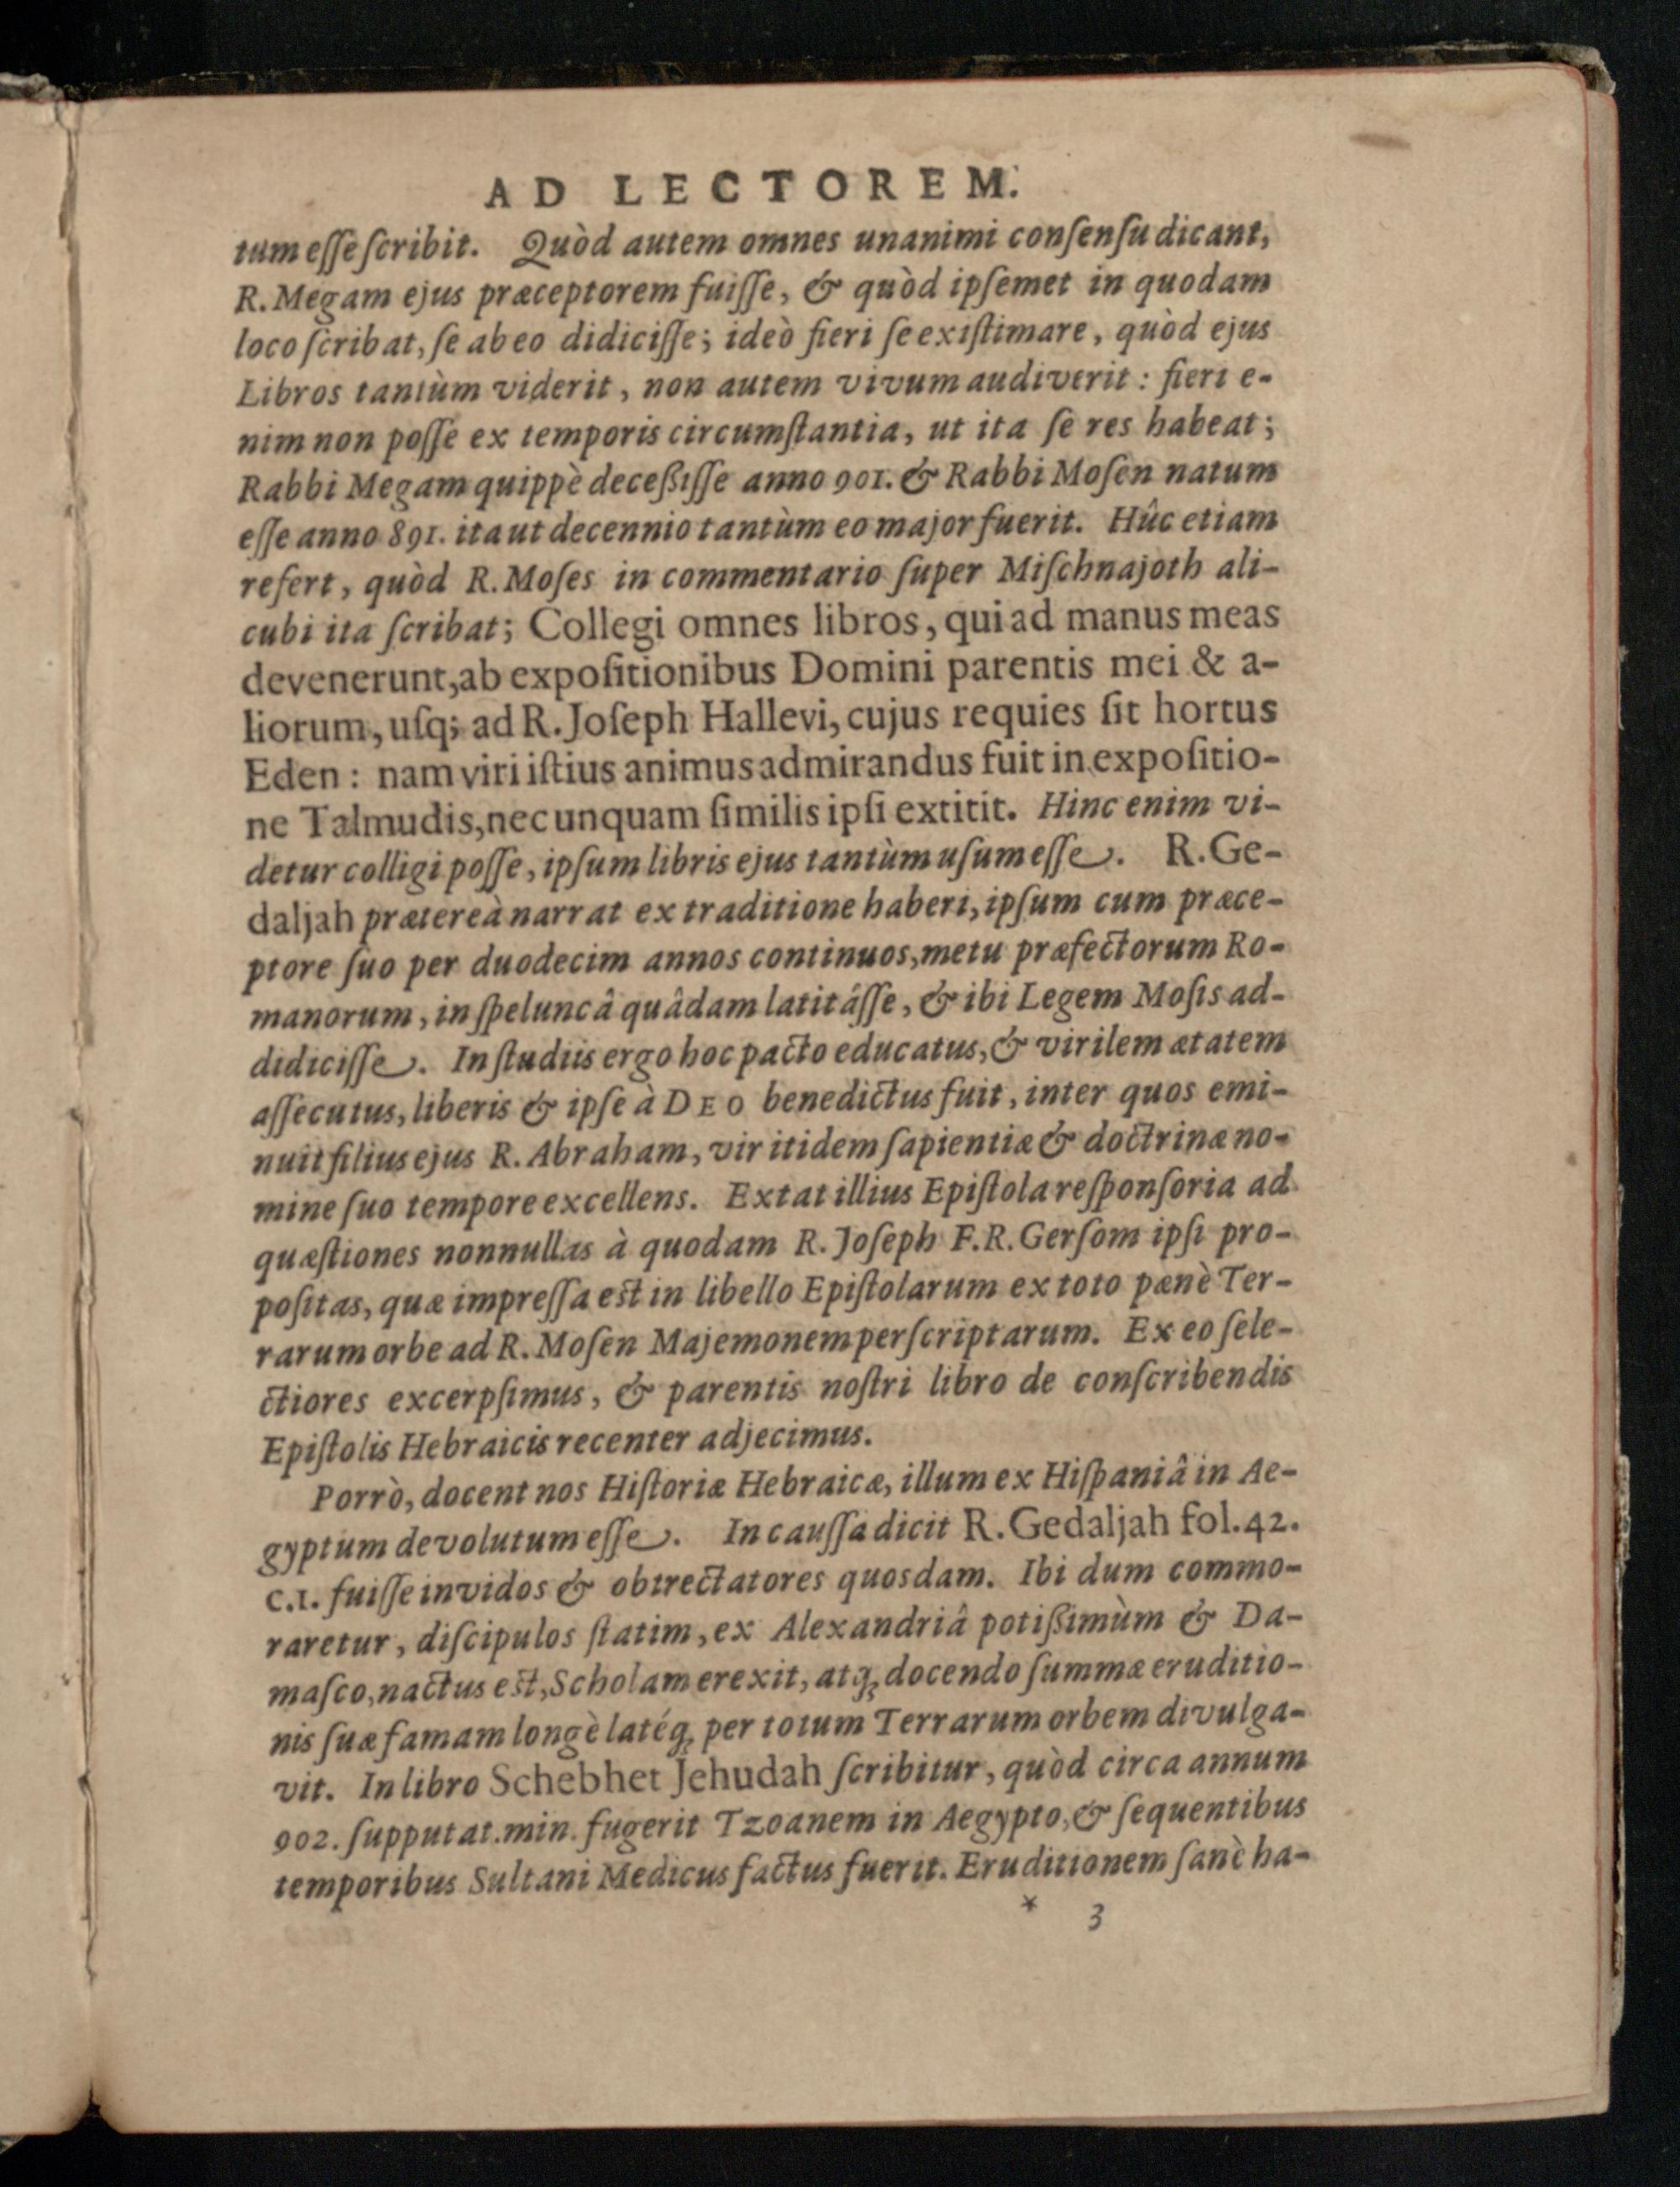 AD LECTOREM.
tum eſſe ſcribit. Quòd autem omnes unanimi conſenſu dicant,
R. Megam ejus præceptorem fuiſſe, & quòd ipſemet in quodam
loco ſcribat, ſe ab eo didiciſſe; ideò fieri ſe exiſtimare, quòd ejus
Libros tantùm viderit, non autem vivum audiverit: fieri e-
nim non poſſe ex temporis circumſtantia, ut ita ſe res habeat;
Rabbi Megam quippè deceßiſſe anno 901. & Rabbi Moſen natum
eſſe anno 891. ita ut decennio tantùm eo major fuerit. Hûc etiam
refert, quòd R. Moſes in commentario ſuper Miſchnajoth ali-
cubi ita ſcribat; Collegi omnes libros, qui ad manus meas
devenerunt, ab expoſitionibus Domini parentis mei & a-
liorum, uſq; ad R. Joſeph Hallevi, cujus requies ſit hortus
Eden: nam viri iſtius animus admirandus fuit in expoſitio-
ne Talmudis, nec unquam ſimilis ipſi extitit. Hinc enim vi-
detur colligi poſſe, ipſum libris ejus tantùm uſum eſſe. R. Ge-
daljah prætereà narrat ex traditione haberi, ipſum cum præce-
ptore ſuo per duodecim annos continuos, metu præfectorum Ro-
manorum, in ſpeluncâ quâdam latitáſſe, & ibi Legem Moſis ad-
didiciſſe. In ſtudiis ergo hoc pacto educatus, & virilem ætatem
aſſecutus, liberis & ipſe à DEO benedictus fuit, inter quos emi-
nuit filius ejus R. Abraham, vir itidem ſapientiæ & doctrinæ no-
mine ſuo tempore excellens. Extat illius Epiſtola reſponſoria ad
quæſtiones nonnullas à quodam R. Joſeph F. R. Gerſom ipſi pro-
poſitas, quæ impreſſa eſt in libello Epiſtolarum ex toto pænè Ter-
rarum orbe ad R. Moſen Majemonem perſcriptarum. Ex eo ſele-
ctiores excerpſimus, & parentis noſtri libro de conſcribendis
Epiſtolis Hebraicis recenter adjecimus.
Porrò, docent nos Hiſtoriæ Hebraicæ, illum ex Hiſpaniâ in Ae-
gyptum devolutum eſſe. In cauſſa dicit R. Gedaljah fol. 42.
c. 1. fuiſſe invidos & obtrectatores quosdam. Ibi dum commo-
raretur, diſcipulos ſtatim, ex Alexandriâ potißimùm & Da-
maſco, nactus eſt, Scholam erexit, atq; docendo ſummæ eruditio-
nis ſuæ famam longè latéq; per totum Terrarum orbem divulga-
vit. In libro Schebhet Jehudah ſcribitur, quòd circa annum
902. ſupputat. min. fugerit Tzoanem in Aegypto, & ſequentibus
temporibus Sultani Medicus factus fuerit. Eruditionem ſanè ha-
* 3